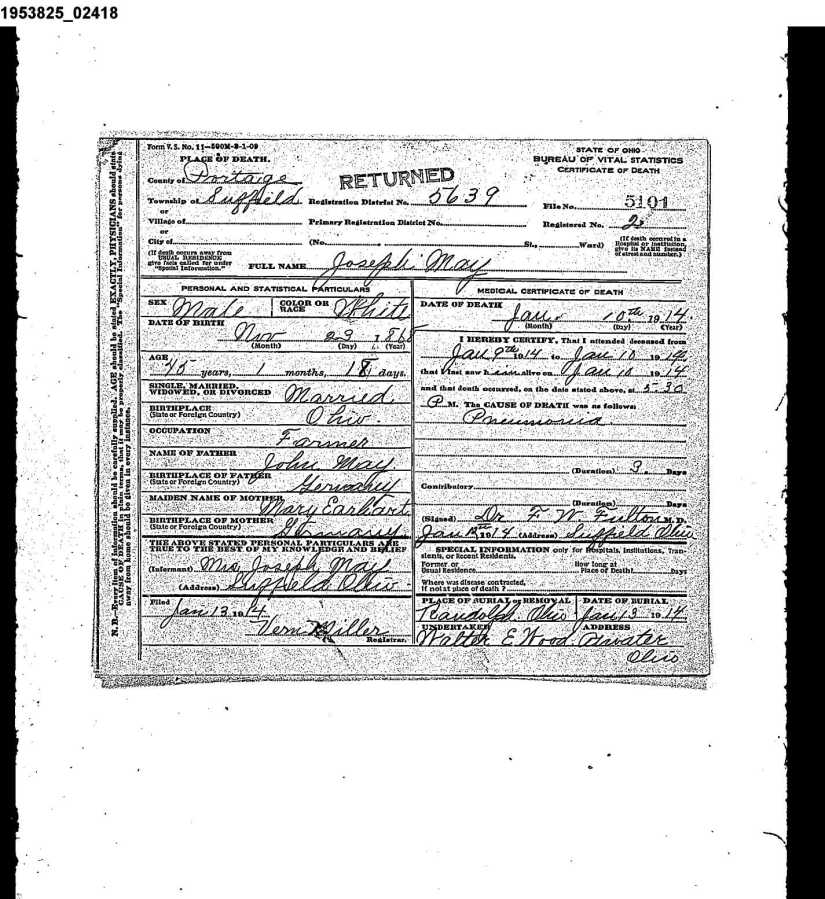 1953825_02418
Form V. S. No. 11—500M-8-1-09
PLACE OF DEATH.
STATE OF OHIO
BUREAU OF VITAL STATISTICS
CERTIFICATE OF DEATH
County of Portage
RETURNED
Township of Suffield Registration District No. 5639 File No. 5101
or
Village of Primary Registration District No. Registered No.
or
City of (No. St., Ward) (If death occurred in a Hospital or Institution, give its NAME instead of street and number.)
(If death occurs away from USUAL RESIDENCE give facts called for under "Special Information.")
FULL NAME Joseph May
PERSONAL AND STATISTICAL PARTICULARS
SEX Male COLOR OR RACE White
DATE OF BIRTH Nov 1868
(Month) (Day) (Year)
AGE 45 years, 1 months, 18 days.
SINGLE, MARRIED, WIDOWED, OR DIVORCED Married
BIRTHPLACE (State or Foreign Country) Ohio.
OCCUPATION Farmer
NAME OF FATHER John May
BIRTHPLACE OF FATHER (State or Foreign Country) Germany
MAIDEN NAME OF MOTHER Mary Earhart
BIRTHPLACE OF MOTHER (State or Foreign Country) Germany
THE ABOVE STATED PERSONAL PARTICULARS ARE TRUE TO THE BEST OF MY KNOWLEDGE AND BELIEF
(Informant) Mrs Joseph May
(Address) Suffield Ohio
Filed
Jan 13 1914
Vern Miller
Registrar.
MEDICAL CERTIFICATE OF DEATH
DATE OF DEATH
Jan. 10th 1914.
(Month) (Day) (Year)
I HEREBY CERTIFY, That I attended deceased from
Jan 9th 1914 to Jan 10 1914
that I last saw him alive on Jan 10 1914
and that death occurred, on the date stated above, at 5-30
P M. The CAUSE OF DEATH was as follows:
Pneumonia.
(Duration) 3. Days
Contributory
(Duration) Days
(Signed) Dr F W Fulton M.D.
Jan 1914 (Address) Suffield Ohio
SPECIAL INFORMATION only for Hospitals, Institutions, Transients, or Recent Residents.
Former or Usual Residence How long at Place of Death? Days
Where was disease contracted, If not at place of death?
PLACE OF BURIAL or REMOVAL DATE OF BURIAL
Randolph, Ohio Jan 13 1914
UNDERTAKER ADDRESS
Walter E Wood. Atwater
Ohio
N. B.—Every item of information should be carefully supplied. AGE should be stated EXACTLY, PHYSICIANS should state
CAUSE OF DEATH in plain terms, that it may be properly classified. The "Special Information" for persons dying
away from home should be given in every instance.